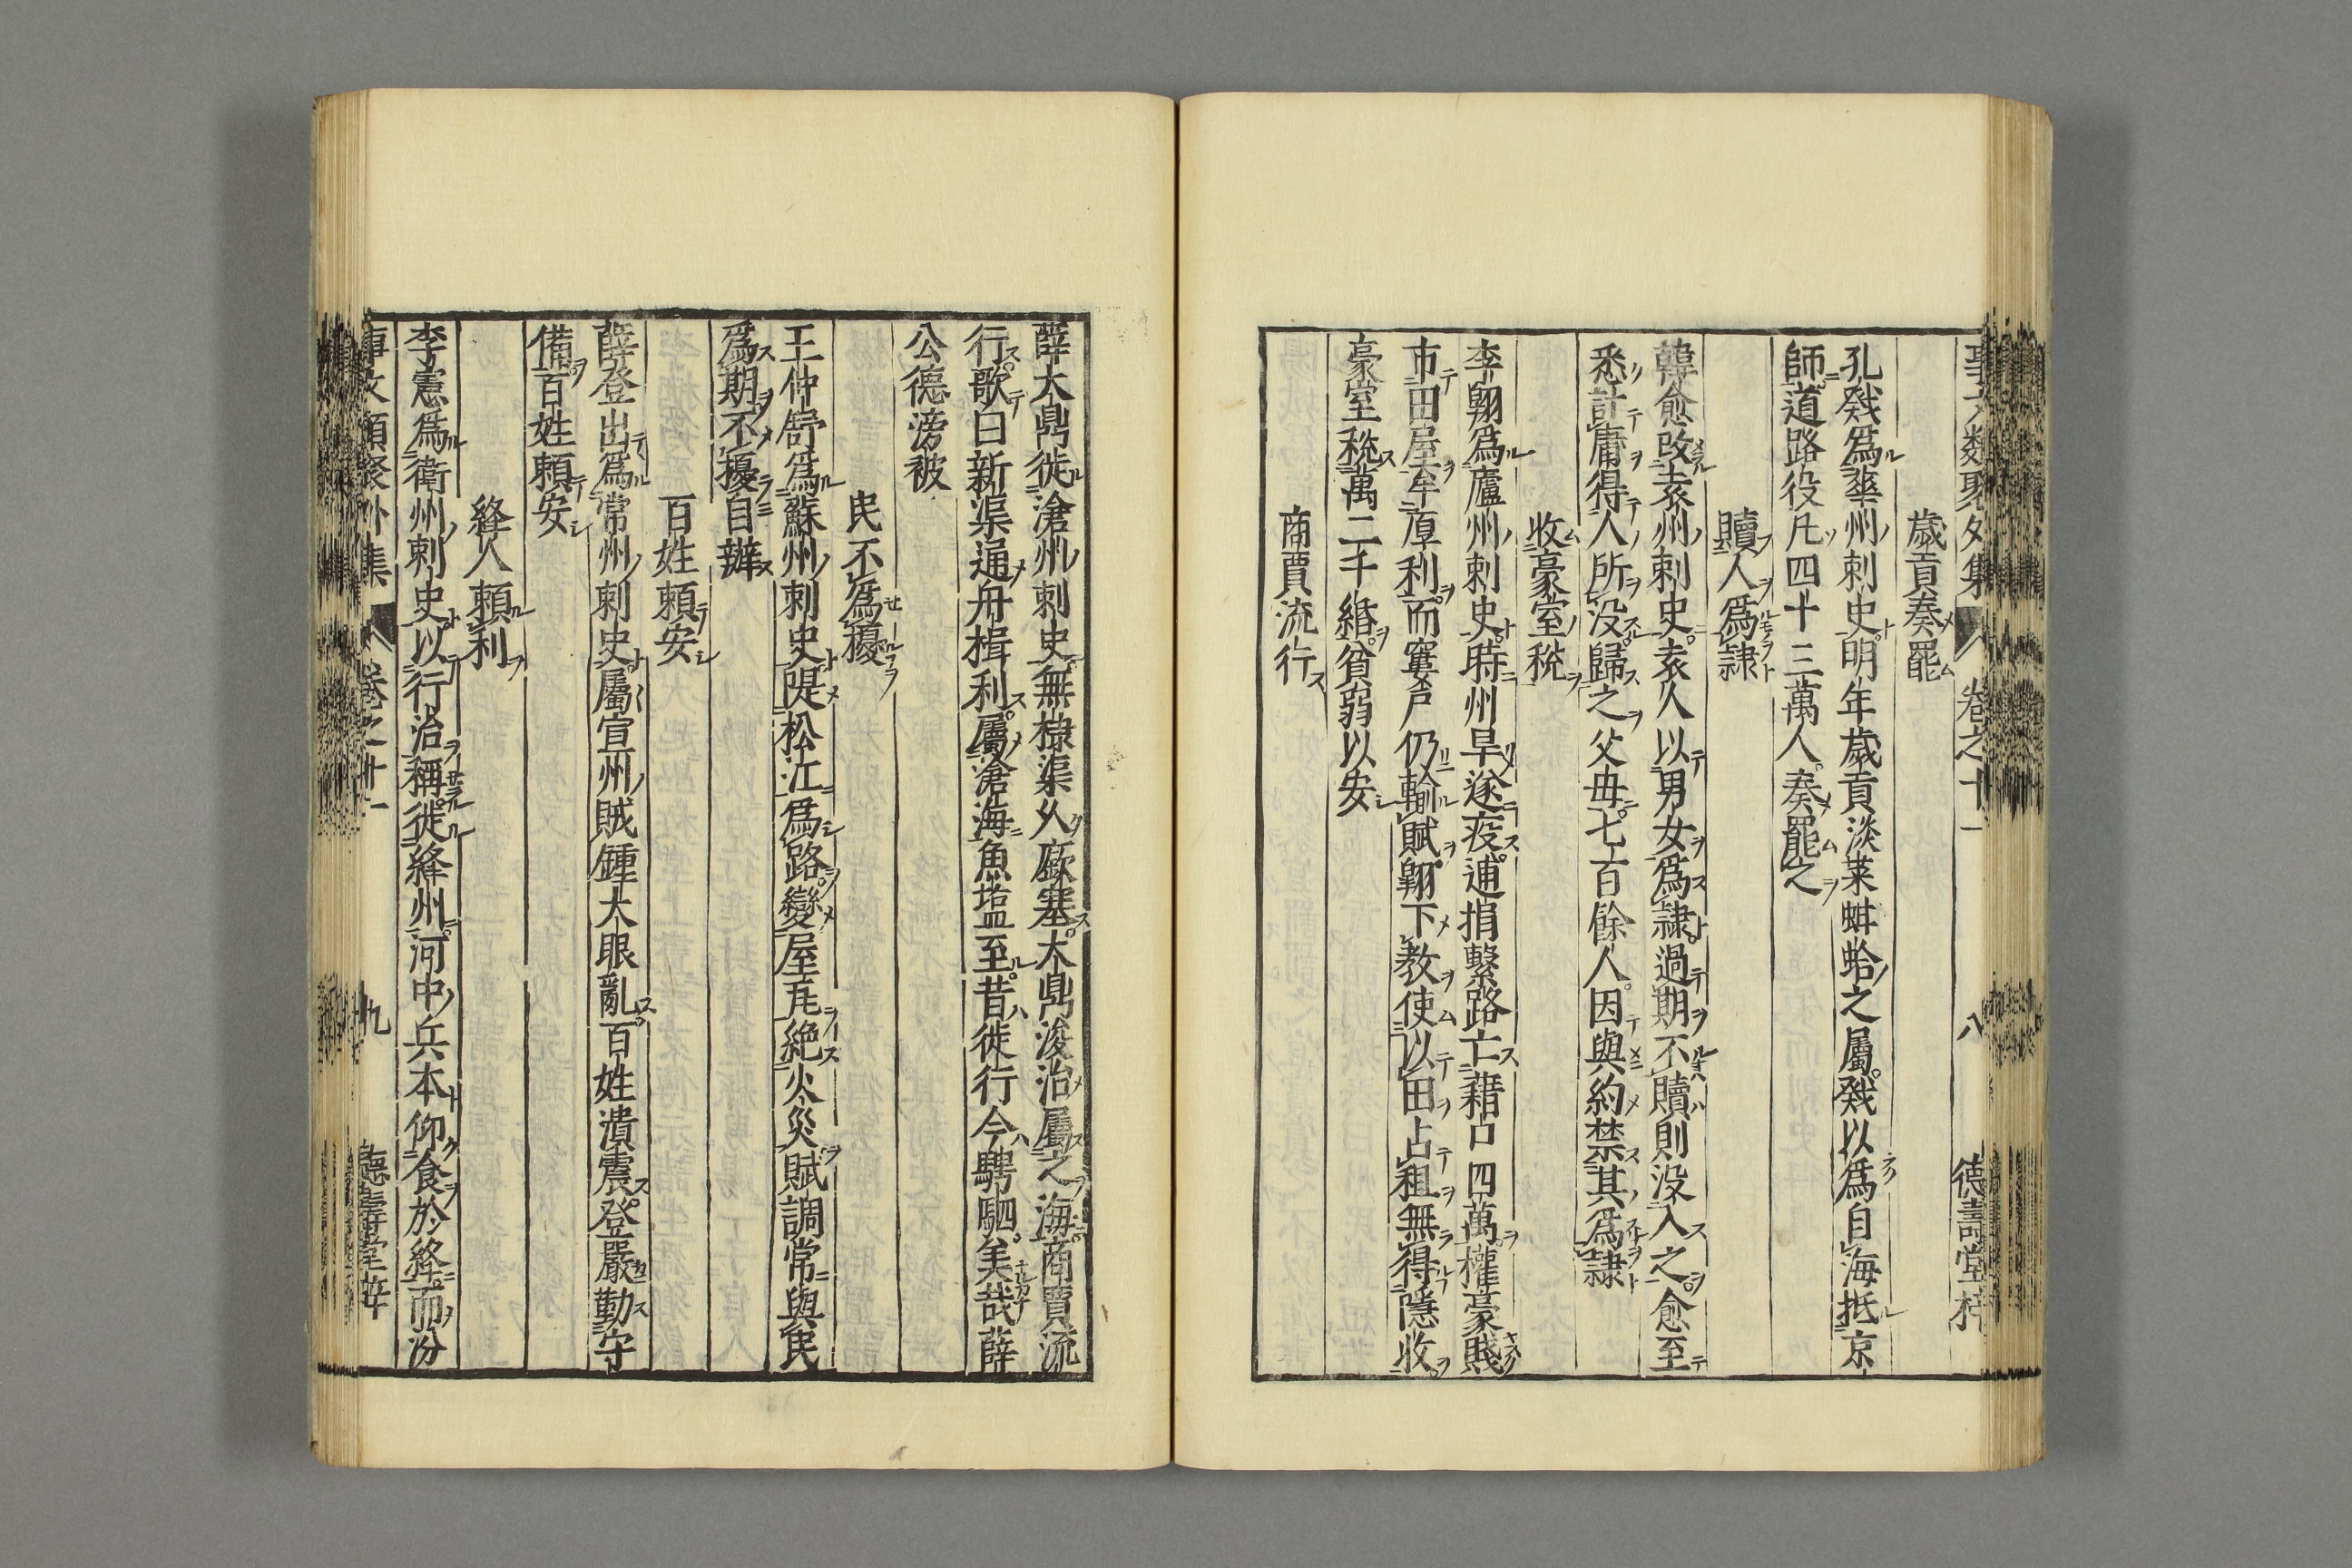 歳貢奏罷
孔戣爲華州刺史明年歳貢淡菜蚶蛤之屬戣以爲自海抵京
師道路役凡四十三萬人奏罷之
贖人爲隷
韓愈改袁州刺史袁人以男女爲隷過期不贖則没入之愈至
悉計庸得人所没歸之父母七百餘人因與約禁其爲隷
收豪室稅
李翺爲廬州刺史時州旱遂疫逋捐繫路亡藉口四萬權豪賤
市田屋牟厚利而窶戸仍輸賦翺下教使以田占租無得隱收
豪室稅萬二千緡貧弱以安
商賈流行
薛大鼎徙滄州刺史無棣渠久廞塞大鼎浚治屬之海商賈流
行歌曰新渠通舟楫利屬滄海魚塩至昔徙行今騁駟美哉薛
公德滂被
民不爲擾
王仲舒爲蘇州刺史隄松江爲路變屋瓦絶火災賦調常與民
爲期不擾自辦
百姓頼安
薛登出爲常州刺史屬宣州賊鍾大眼亂百姓潰震登嚴勤守
備百姓頼安
絳人頼利
李憲爲衛州刺史以行治稱徙絳州河中兵本仰食於絳而汾